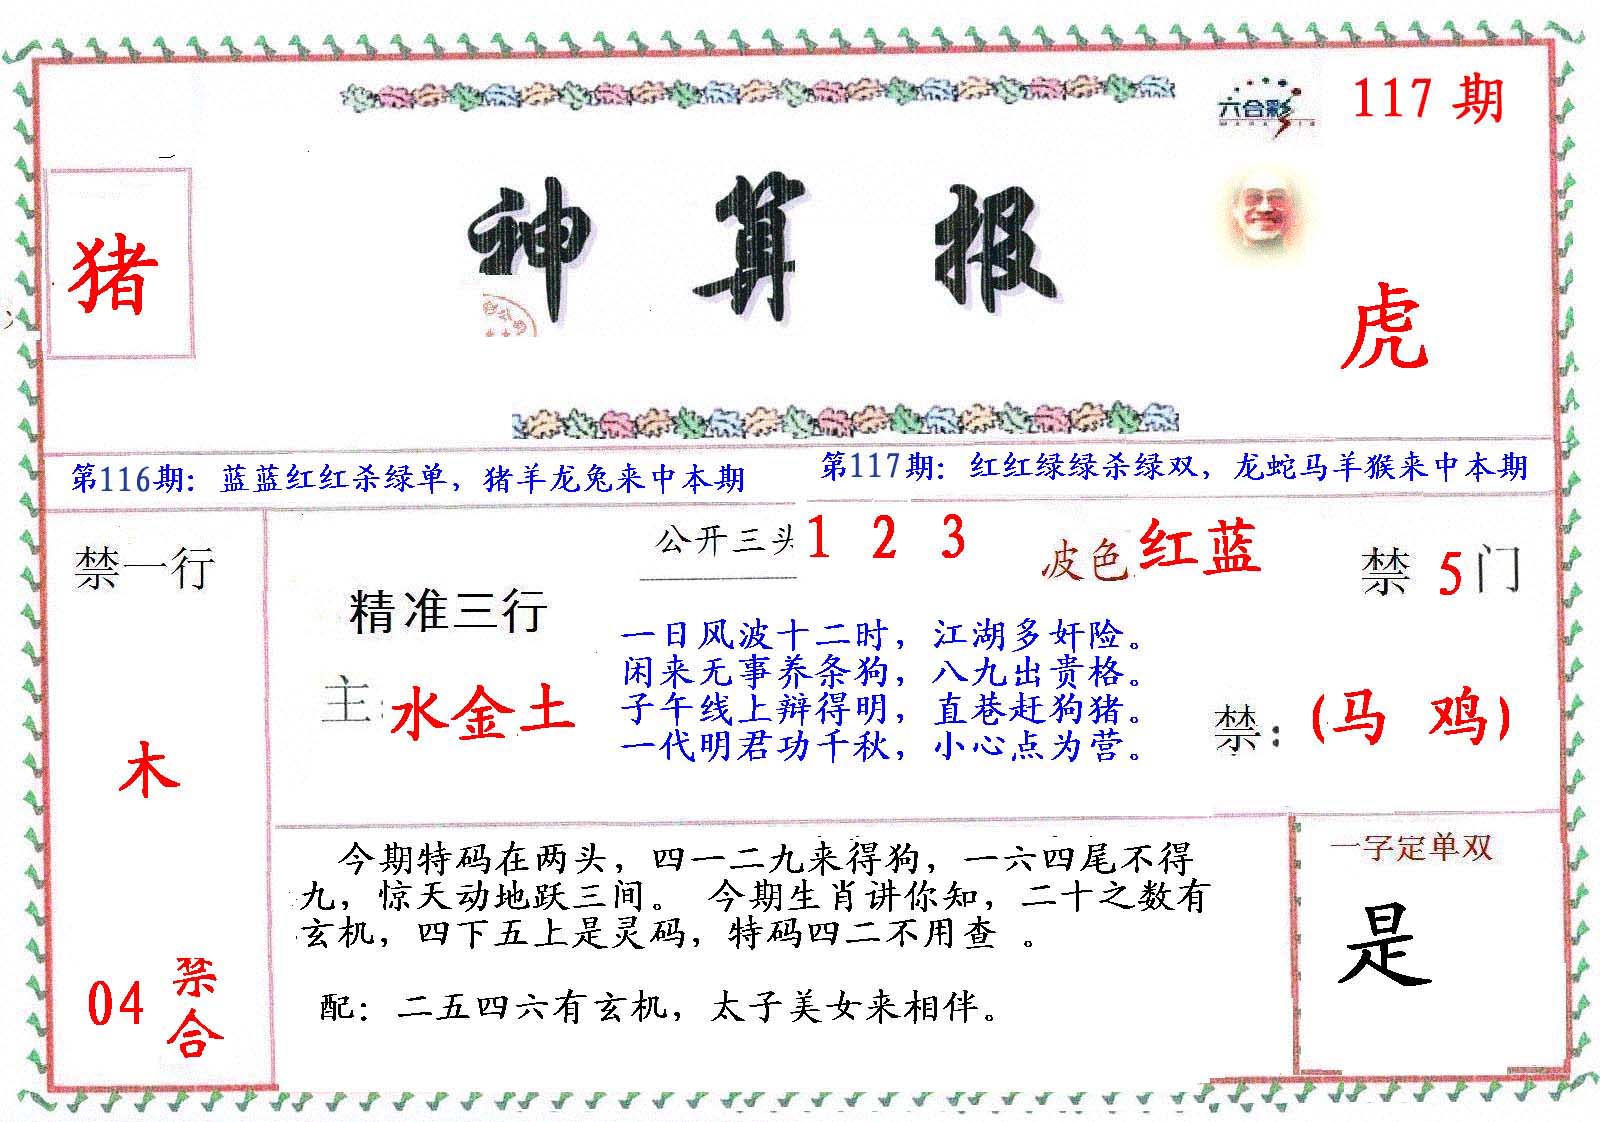 六合彩
117 期
神 算 报
猪
虎
第116期：蓝蓝红红杀绿单，猪羊龙兔来中本期
第117期：红红绿绿杀绿双，龙蛇马羊猴来中本期
禁一行
木
04 禁合
精准三行
主：水金土
公开三头 1 2 3
波色 红蓝
禁 5 门
一日风波十二时，江湖多奸险。
闲来无事养条狗，八九出贵格。
子午线上辩得明，直巷赶狗猪。
一代明君功千秋，小心点为营。
禁：(马 鸡)
今期特码在两头，四一二九来得狗，一六四尾不得
九，惊天动地跃三间。 今期生肖讲你知，二十之数有
玄机，四下五上是灵码，特码四二不用查 。
配：二五四六有玄机，太子美女来相伴。
一字定单双
是